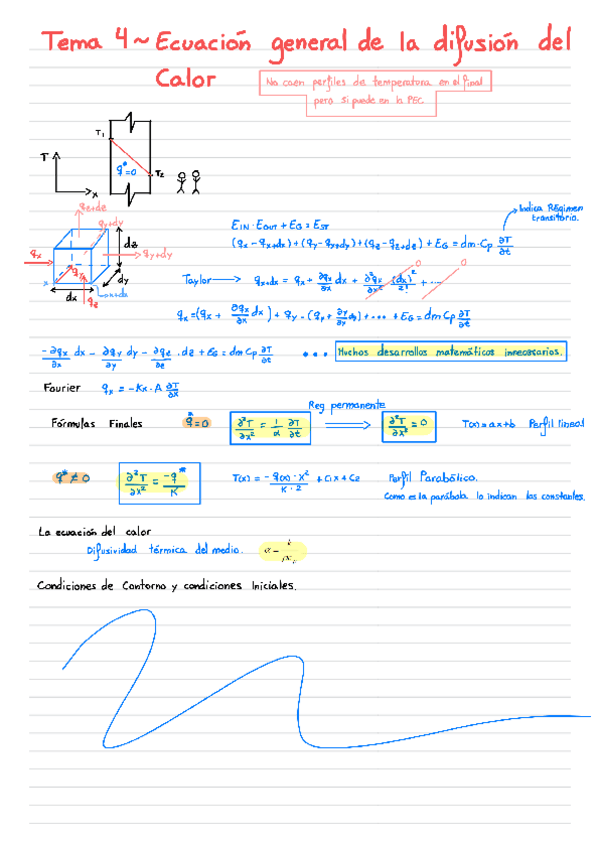 Tema 4 ~ Ecuación general de la difusión del
Calor
No caen perfiles de temperatura en el final
pero si puede en la PEC
T₁
T
q*=0
T₂
x
Indica Régimen
transitorio.
qz+dz
qy+dy
EIN - EOUT + EG = EST
dz
(qx - qx+dx) + (qy - qy+dy) + (qz - qz+dz) + EG = dm·Cp ∂T/∂t
qx
qy
qx+dx
dy
dx
qz
x+dx
Taylor → qx+dx = qx + ∂qx/∂x dx + ∂²qx/∂x² (dx)²/2! + ...
0
0
qx - (qx + ∂qx/∂x dx) + qy - (qy + ∂y/∂y dy) + ... + EG = dm Cp ∂T/∂t
- ∂qx/∂x dx - ∂qy/∂y dy - ∂qz/∂z . dz + EG = dm Cp ∂T/∂t
... Muchos desarrollos matemáticos innecesarios.
Fourier qx = -Kx · A ∂T/∂x
Reg permanente
Fórmulas Finales q*=0 ∂²T/∂x² = 1/α ∂T/∂t ⟹ ∂²T/∂x² = 0 T(x) = ax+b Perfil lineal
q* ≠ 0 ∂²T/∂x² = -q*/K T(x) = - q(x) · x²/K·2 + C₁x + C₂ Perfil Parabólico.
Como es la parábola lo indican las constantes.
La ecuación del calor
Difusividad térmica del medio. α = k/ρcp
Condiciones de Contorno y condiciones Iniciales.